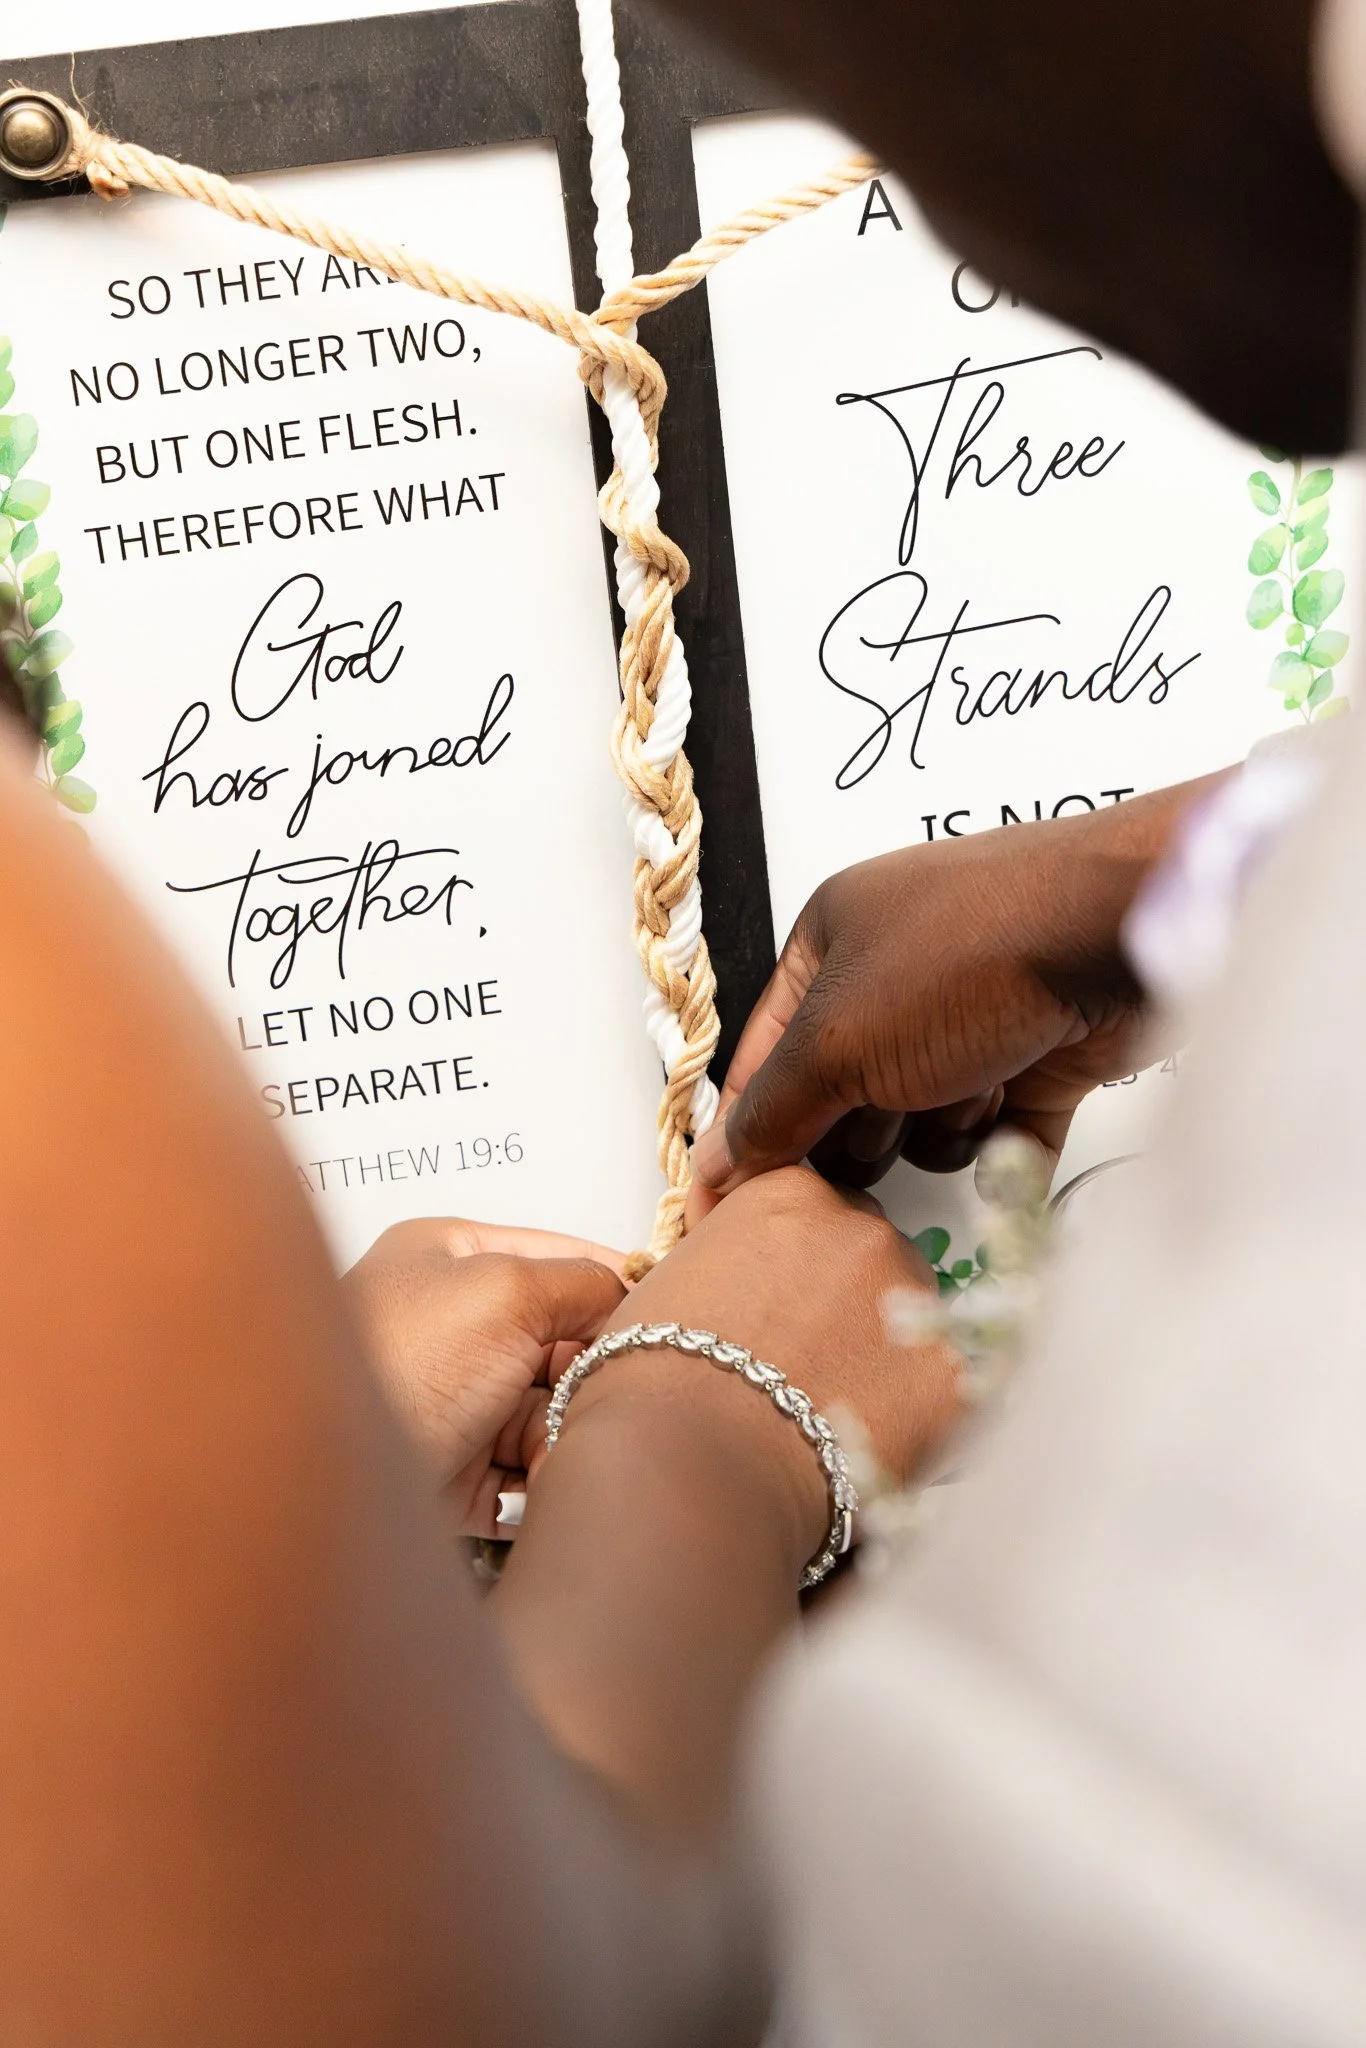 SO THEY ARE
NO LONGER TWO,
BUT ONE FLESH.
THEREFORE WHAT
God
has joined
together,
LET NO ONE
SEPARATE.
MATTHEW 19:6
A
Three
Strands
IS NOT